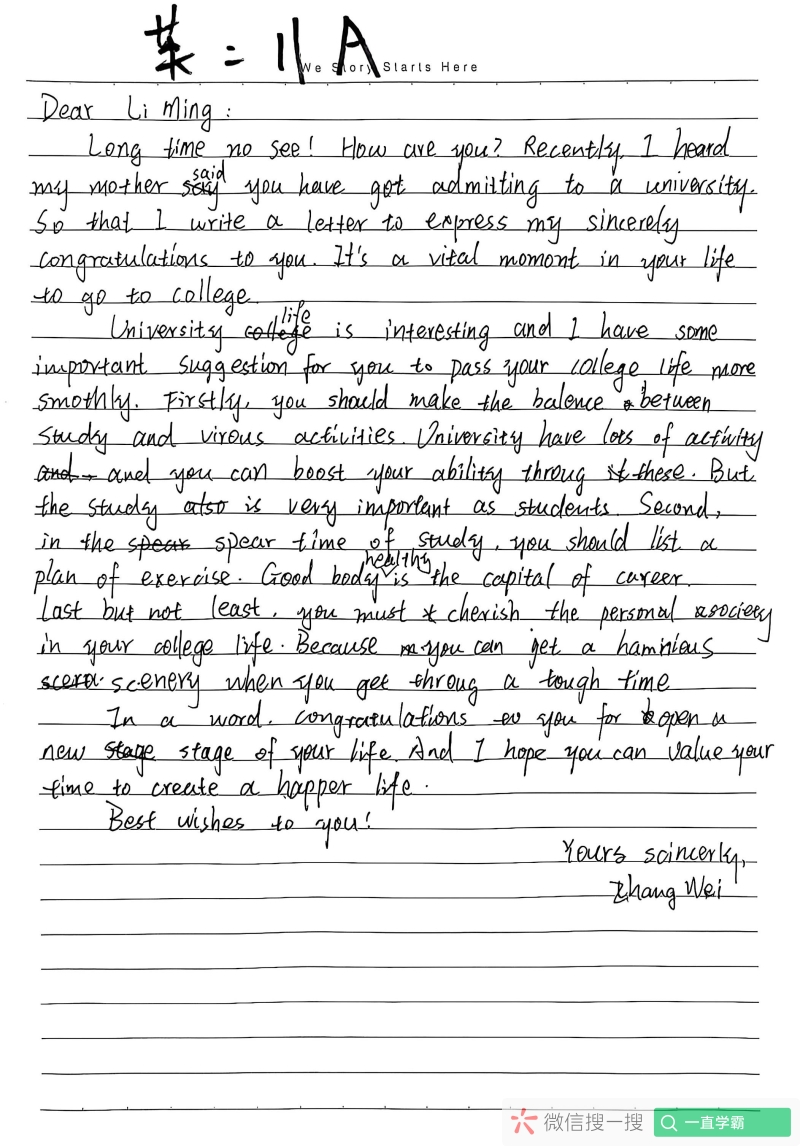 英二 11 A
We Story Starts Here
Dear Li Ming:
Long time no see! How are you? Recently, I heard
my mother said you have got admitting to a university.
So that I write a letter to express my sincerely
congratulations to you. It's a vital momont in your life
to go to college.
University life is interesting and I have some
important suggestion for you to pass your college life more
smothly. Firstly, you should make the balence between
study and virous activities. University have lots of activity
and you can boost your ability throug these. But
the study is very important as students. Second,
in the spear time of study, you should list a
plan of exercise. Good body healthy is the capital of career.
Last but not least, you must cherish the personal society
in your college life. Because you can get a hamnious
scenery when you get throug a tough time
In a word, congratulations to you for open a
new stage of your life. And I hope you can value your
time to create a happer life.
Best wishes to you!
Yours scincerly,
Zhang Wei
微信搜一搜
一直学霸